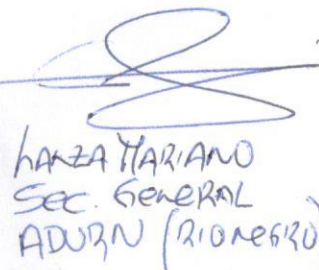 LANZA MARIANO
SEC. GENERAL
ADURN (RIONEGRO)